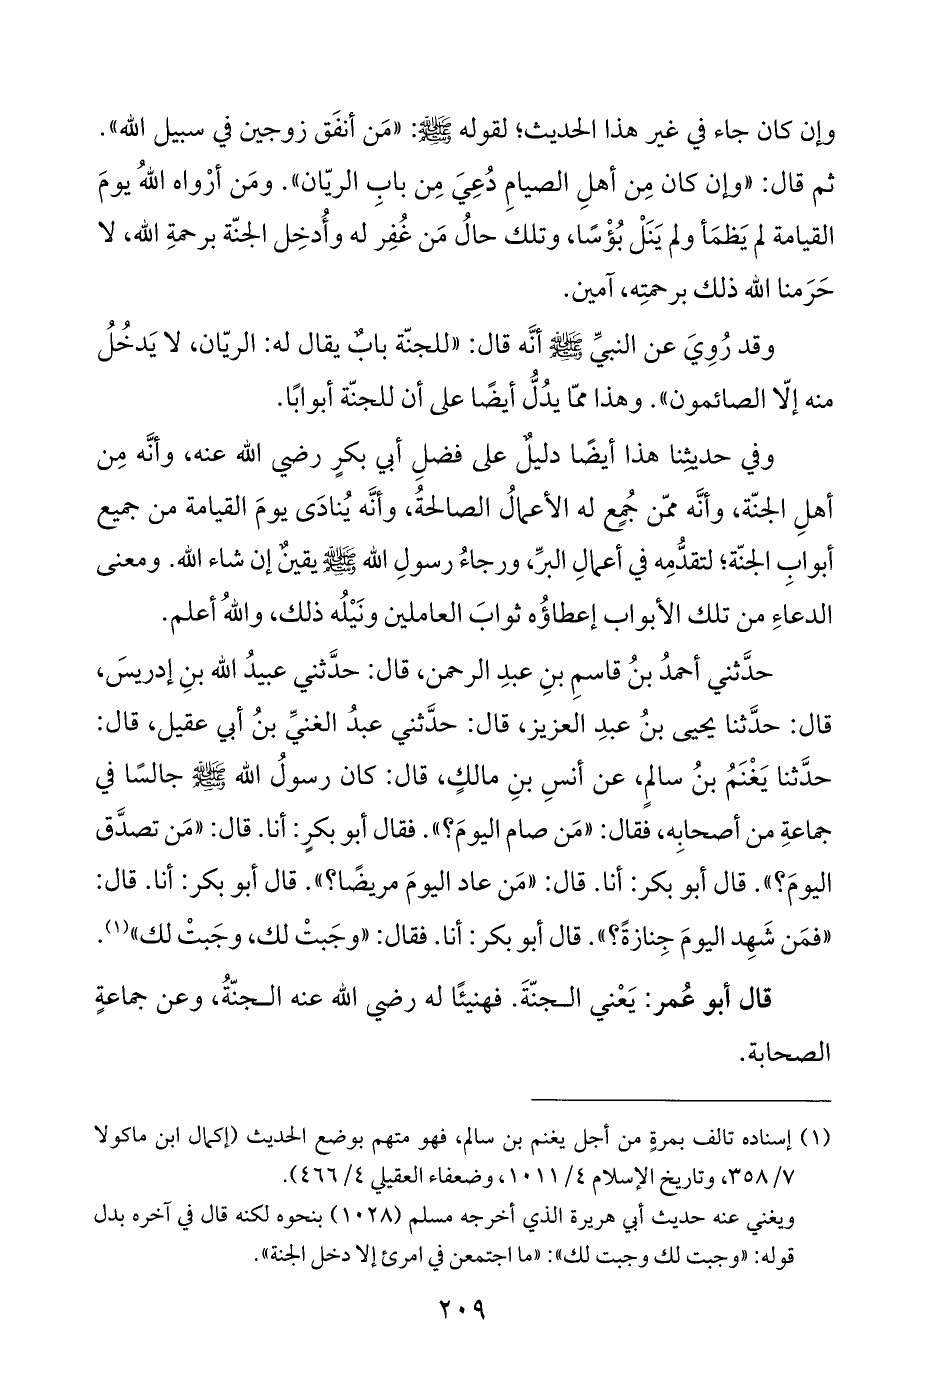 وإن كان جاء في غير هذا الحديث؛ لقوله ﷺ: «مَن أنفَق زوجين في سبيل الله».
ثم قال: «وإن كان مِن أهلِ الصيامِ دُعِيَ مِن بابِ الريّان». ومَن أرْواه اللهُ يومَ
القيامة لم يَظمَأ ولم يَنَلْ بُؤْسًا، وتلك حالُ مَن غُفِر له وأُدخِل الجنّة برحمةِ الله، لا
حَرَمنا الله ذلك برحمتِه، آمين.
وقد رُوِيَ عن النبيِّ ﷺ أنَّه قال: «للجنّة بابٌ يقال له: الريّان، لا يَدخُلُ
منه إلّا الصائمون». وهذا ممّا يدُلُّ أيضًا على أن للجنّة أبوابًا.
وفي حديثِنا هذا أيضًا دليلٌ على فضلِ أبي بكرٍ رضي الله عنه، وأنَّه مِن
أهلِ الجنّة، وأنَّه ممّن جُمِع له الأعمالُ الصالحةُ، وأنَّه يُنادَى يومَ القيامة من جميع
أبوابِ الجنّة؛ لتقدُّمِه في أعمالِ البرِّ، ورجاءُ رسولِ الله ﷺ يقينٌ إن شاء الله. ومعنى
الدعاءِ من تلك الأبواب إعطاؤُه ثوابَ العاملين ونَيْلُه ذلك، واللهُ أعلم.
حدَّثني أحمدُ بنُ قاسمِ بنِ عبدِ الرحمن، قال: حدَّثني عبيدُ الله بنِ إدريسَ،
قال: حدَّثنا يحيى بنُ عبدِ العزيز، قال: حدَّثني عبدُ الغنيِّ بنُ أبي عقيل، قال:
حدَّثنا يَغْنَمُ بنُ سالمٍ، عن أنسِ بنِ مالكٍ، قال: كان رسولُ الله ﷺ جالسًا في
جماعةِ من أصحابِه، فقال: «مَن صام اليومَ؟». فقال أبو بكرٍ: أنا. قال: «مَن تصدَّق
اليومَ؟». قال أبو بكر: أنا. قال: «مَن عاد اليومَ مريضًا؟». قال أبو بكر: أنا. قال:
«فمَن شَهِد اليومَ جِنازةً؟». قال أبو بكر: أنا. فقال: «وجَبتْ لك، وجَبتْ لك»(١).
قال أبو عُمر: يَعْني الـجنّةَ. فهنيئًا له رضي الله عنه الـجنّةُ، وعن جماعةِ
الصحابة.
(١) إسناده تالف بمرةٍ من أجل يغنم بن سالم، فهو متهم بوضع الحديث (إكمال ابن ماكولا
٧/ ٣٥٨، وتاريخ الإسلام ٤/ ١٠١١، وضعفاء العقيلي ٤/ ٤٦٦).
ويغني عنه حديث أبي هريرة الذي أخرجه مسلم (١٠٢٨) بنحوه لكنه قال في آخره بدل
قوله: «وجبت لك وجبت لك»: «ما اجتمعن في امرئ إلا دخل الجنة».
٢٠٩